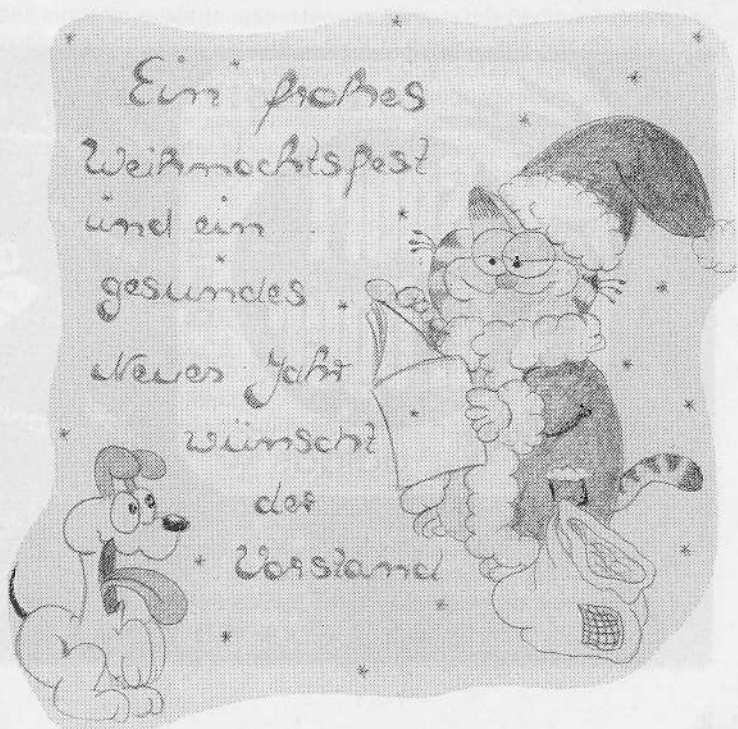 Ein frohes
Weihnachtsfest
und ein
gesundes
Neues Jahr
wünscht
der
Vorstand